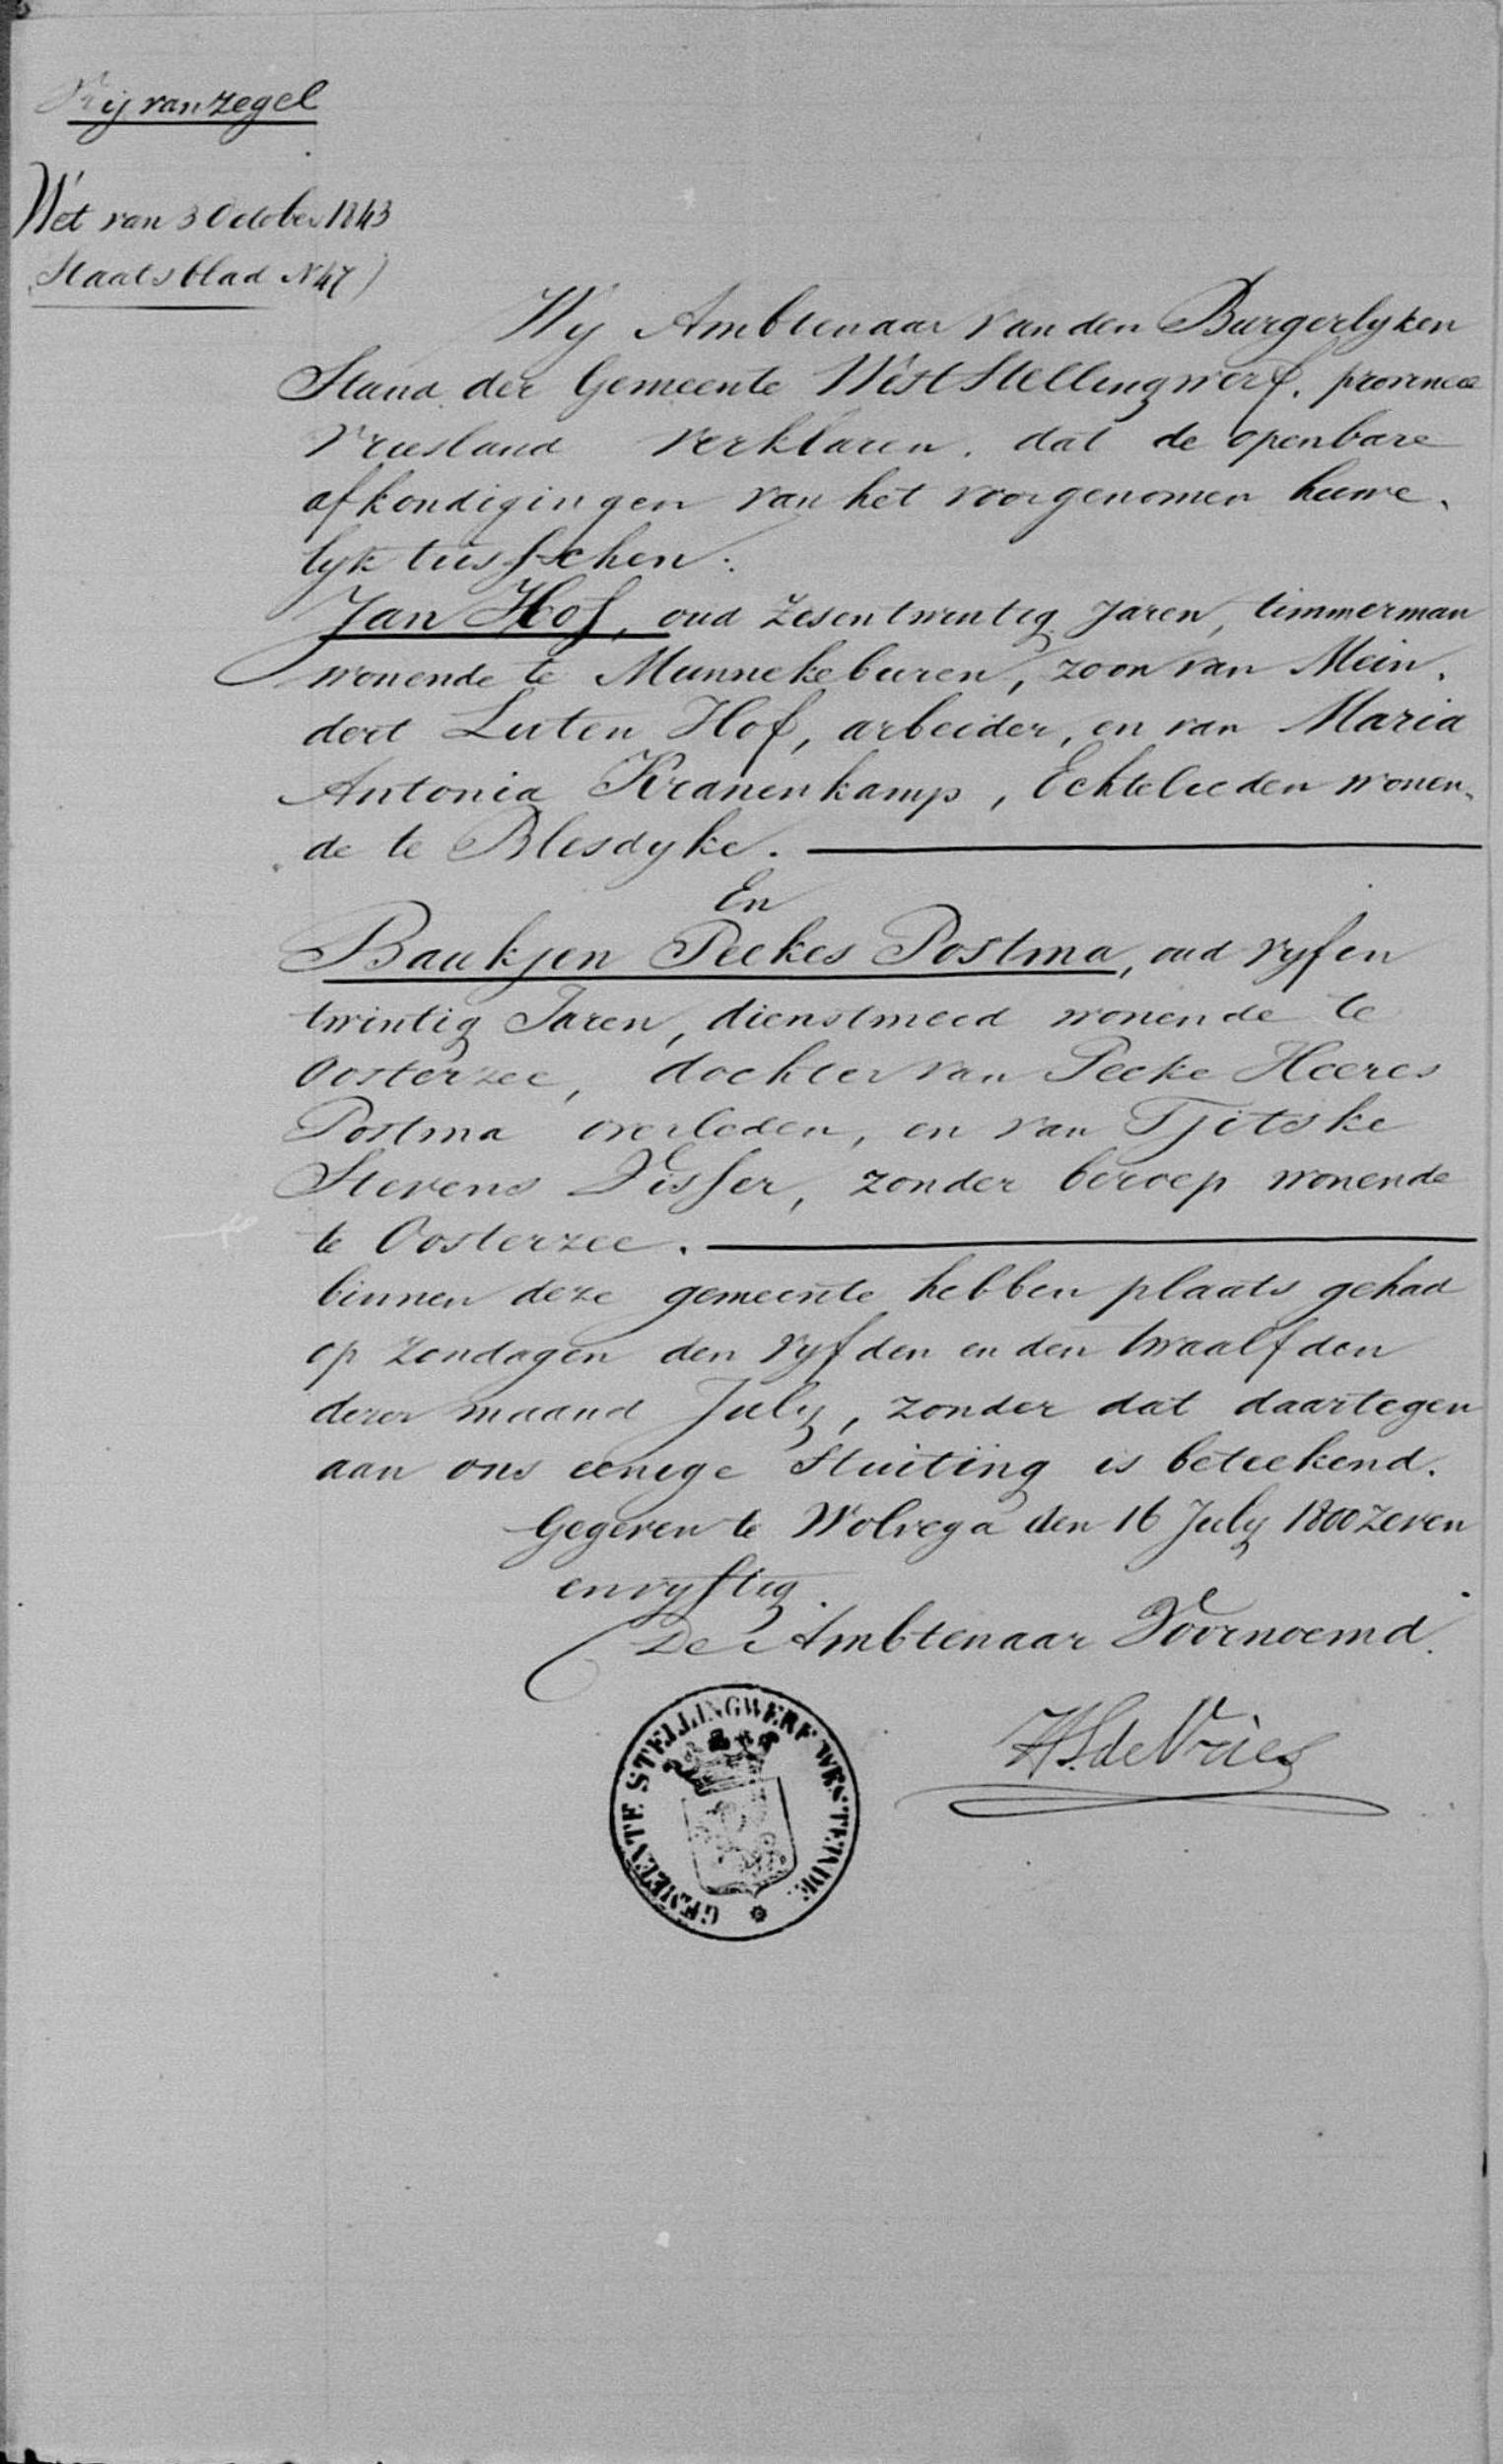 Vrij van zegel
Wet van 3 October 1843
Staatsblad N 47)
Wy Ambtenaar van den Burgerlyken
Stand der Gemeente WestStellingwerf. provincie
Vriesland verklaren. dat de openbare
afkondigingen van het voorgenomen huwe-
lyk tusschen:
Jan Hof, oud Zesentwintig Jaren, timmerman
wonende te Munnekeburen, zoon van Mein-
dert Luten Hof, arbeider, en van Maria
Antonia Kranenkamp, Echtelieden wonen-
de te Blesdyke.
En
Baukjen Peekes Postma, oud vyfen
twintig Jaren, dienstmeid wonende te
Oosterzee, dochter van Peeke Heeres
Postma overleden, en van Tjitske
Stevens Visser, zonder beroep wonende
te Oosterzee.
binnen deze gemeente hebben plaats gehad
op Zondagen den vyfden en den twaalfden
dezer maand July, zonder dat daartegen
aan ons eenige Stuiting is beteekend.
Gegeven te Wolvega den 16 July 1800 zeven
envyftig.
De Ambtenaar Voornoemd.
HS. de Vries
GEMEENTE STELLINGWERF WESTEINDE.